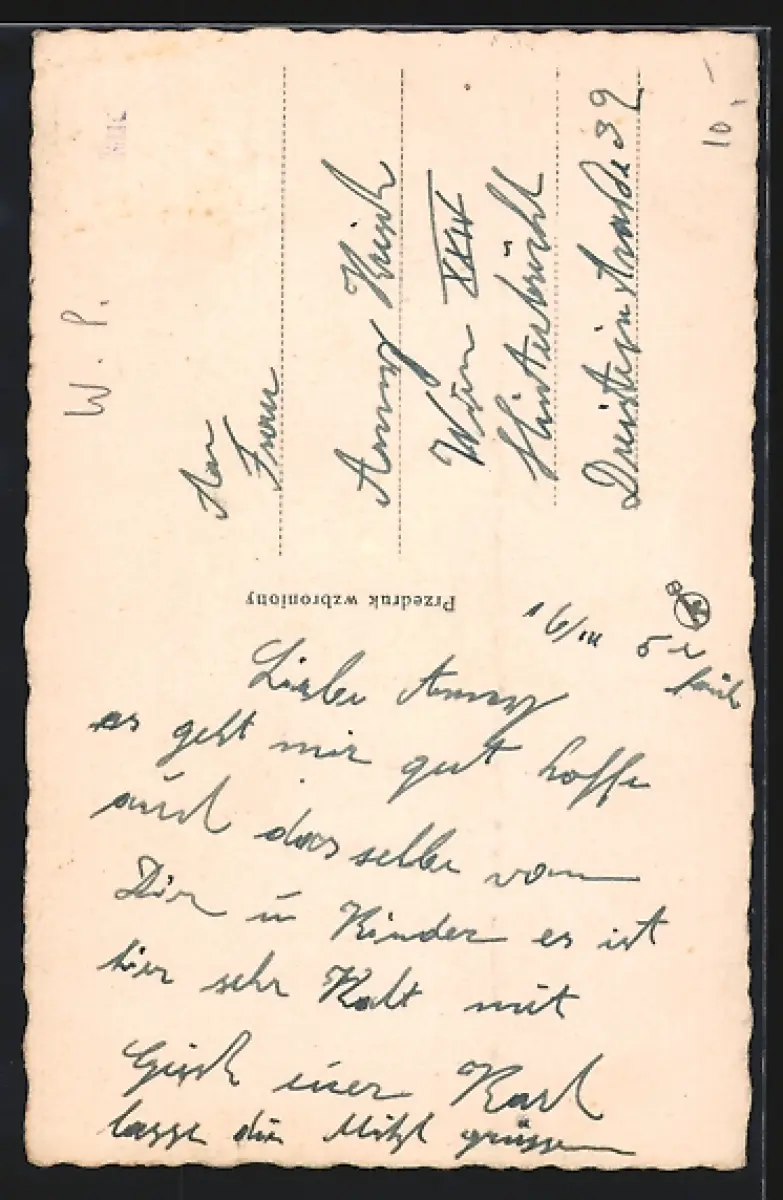 W. P.
An
Frau
Anny
Wien XXIV
Hinterbrühl
Dreisteinstraße 39
10,-
Przedruk wzbroniony
16/III 5 früh
Liebe Anny
es geht mir gut hoffe
auch dasselbe von
Dir u Kinder es ist
hier sehr Kalt mit
euer Karl
lasse die Mitzl grüssen